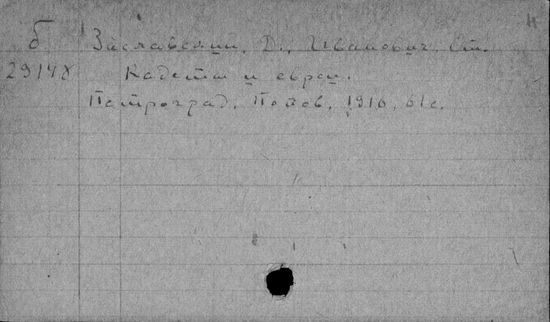 б Заславский, Д., Иванович, Ст.
29148 Кадеты и евреи.
Петроград, Попов, 1916, 61с.